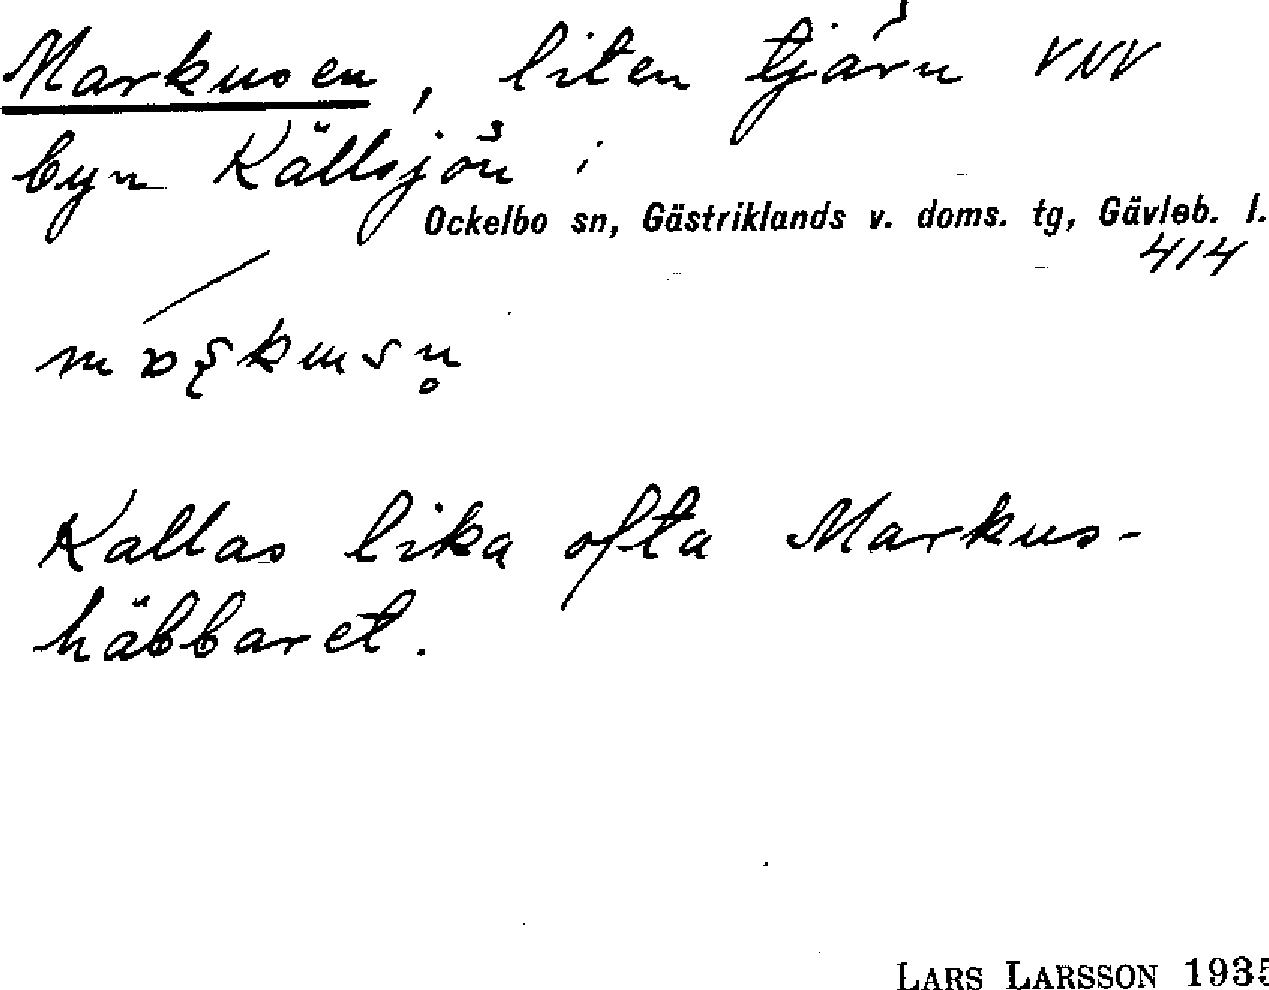 Markusen, liten tjärn VNV
byn Källsjön i
Ockelbo sn, Gästriklands v. doms. tg, Gävleb. l.
414
Kallas lika ofta Markus-
häbbaret.
LARS LARSSON 1935